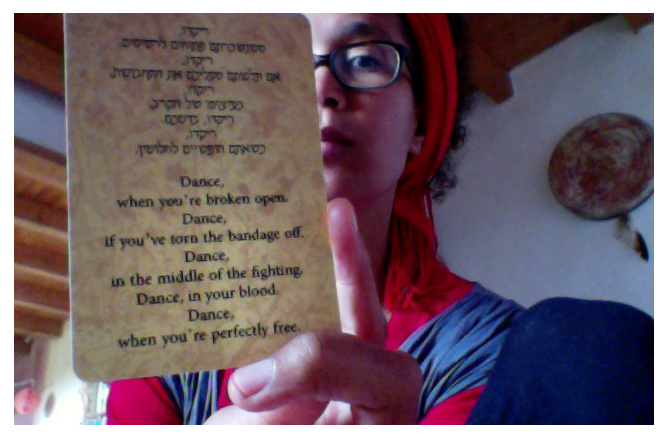 ריקדו,
כשנשברתם פתוחים לרסיסים.
ריקדו,
אם תלשתם מעליכם את התחבושת,
ריקדו,
בעיצומו של הקרב,
ריקדו, בדמכם.
ריקדו,
כשאתם חופשיים לחלוטין.
Dance,
when you're broken open.
Dance,
if you've torn the bandage off.
Dance,
in the middle of the fighting.
Dance, in your blood.
Dance,
when you're perfectly free.